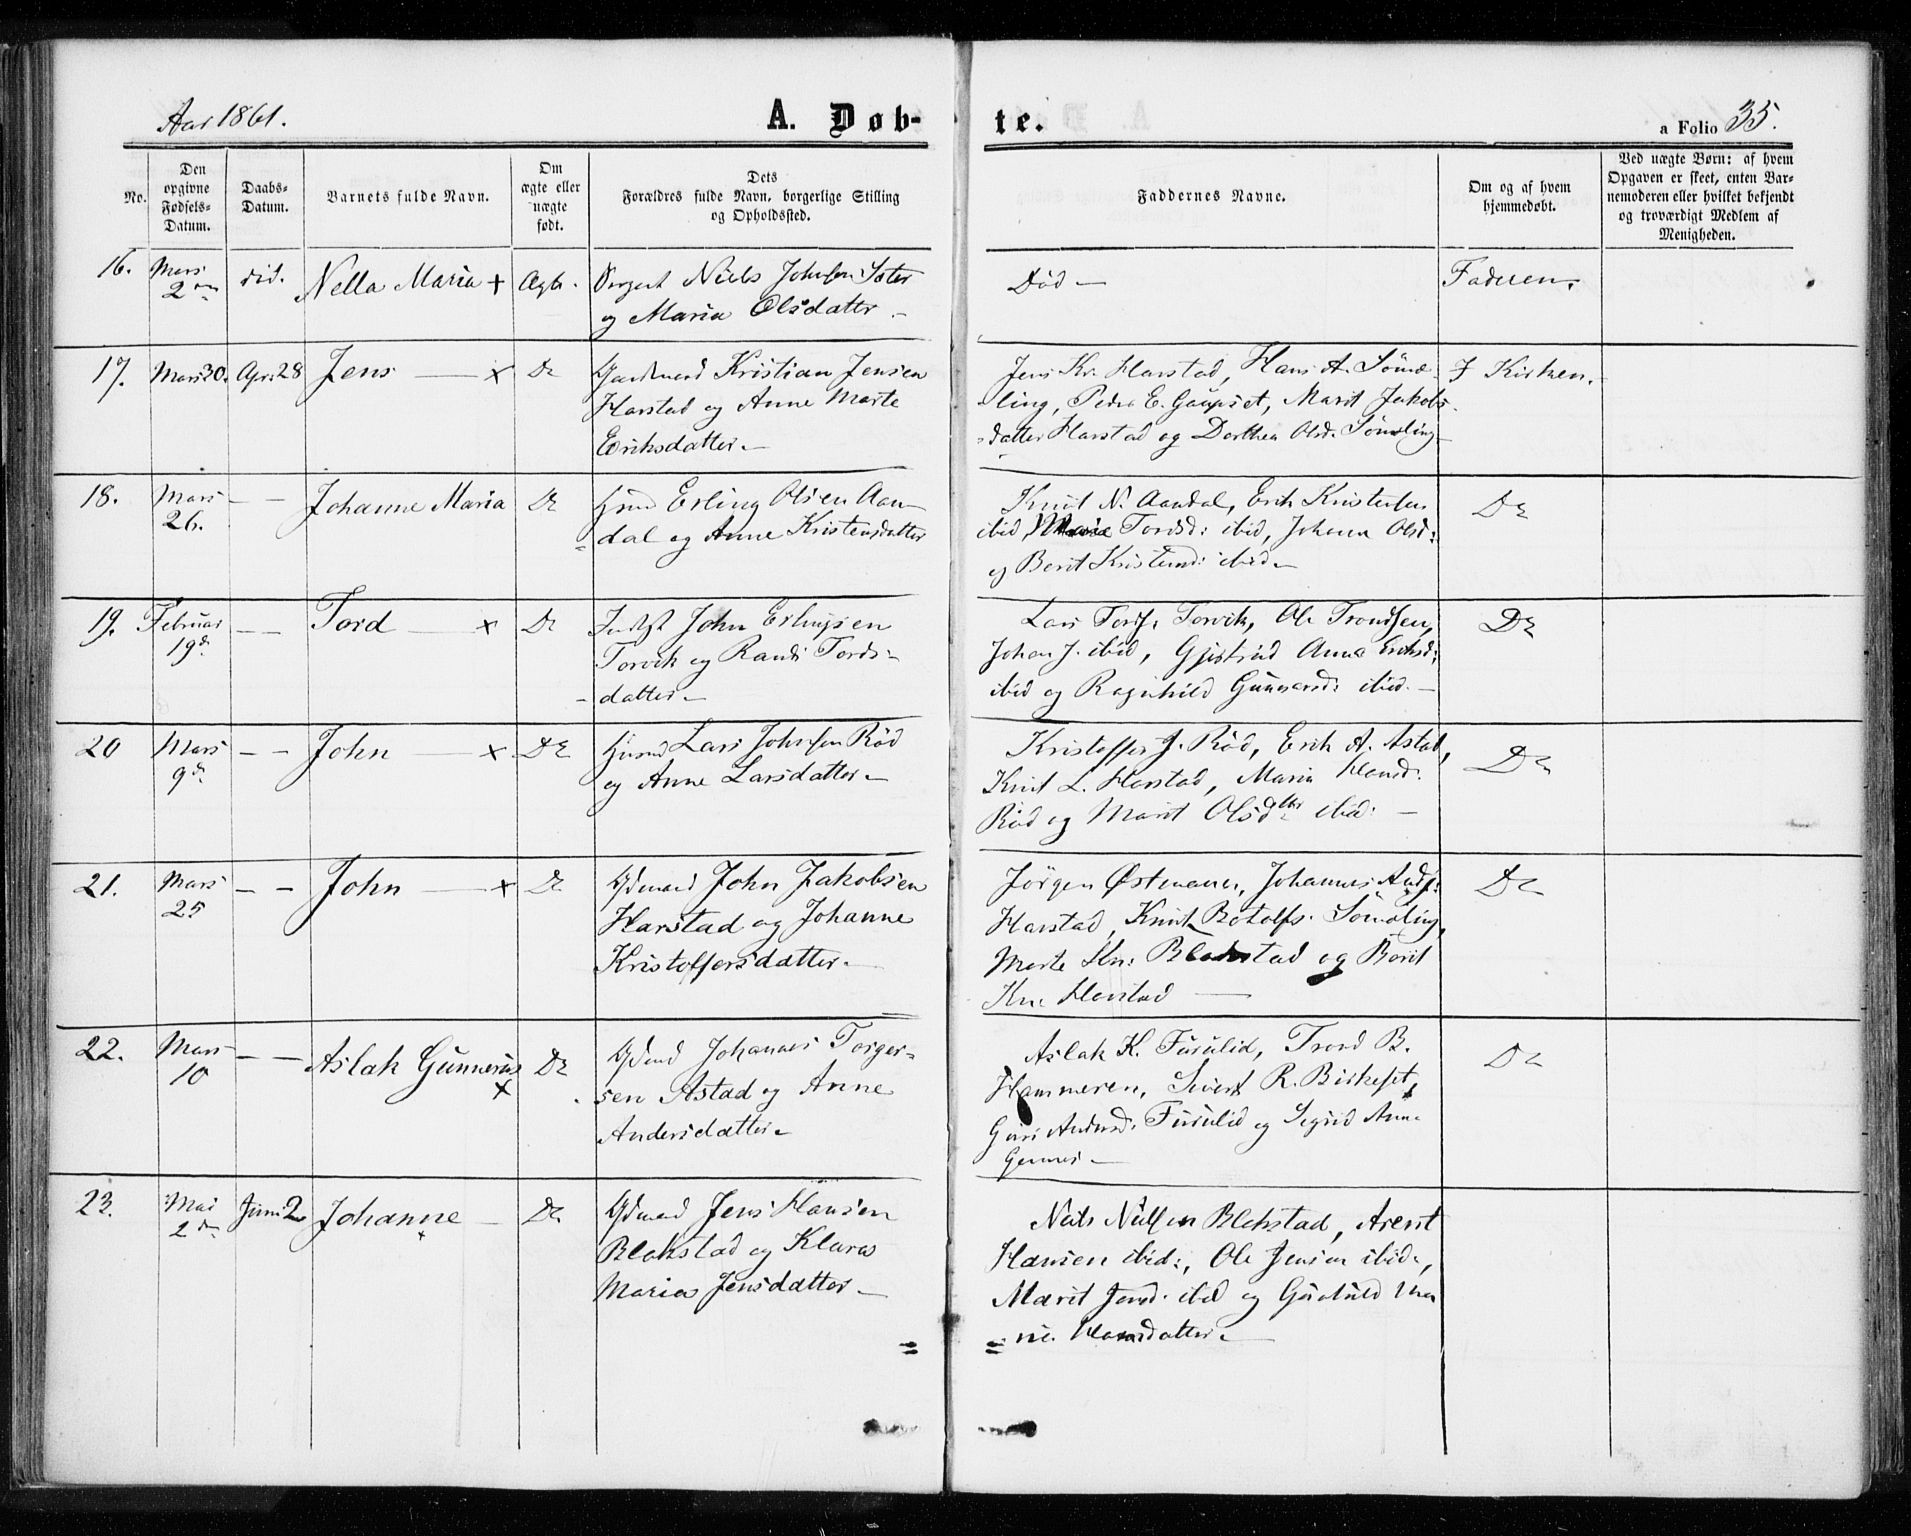 Aar 1861.
A. Døb-
te.
a Folio 35.
No.
Den
opgivne
Fødsels-
Datum.
Daabs-
Datum.
Barnets fulde Navn.
Om
ægte eller
uægte
født.
Dets
Forældres fulde Navn, borgerlige Stilling
og Opholdssted.
Faddernes Navne.
Om og af hvem
hjemmedøbt.
Ved uægte Børn: af hvem
Opgaven er skeet, enten Bar-
nemoderen eller hvilket bekjendt
og troværdigt Medlem af
Menigheden.
16.
Mars
2den
Nella Maria +
Ægte -
Niels Johnsen
og Maria Olsdatter -
Død -
Faderen.
17.
Mars 30.
Apr: 28
Jens — x
Do
Gaardmand Kristian Jensen
Harstad og Anne Marte
Eriksdatter -
Jens Kr. Harstad, Hans A. Sømd-
-ling, Peder E. Gaupset, Marit Jakobs-
-datter Harstad og Dorthea Olsd. Sømdling -
I Kirken.
18.
Mars
26.
- -
Johanne Maria
Do
Erling Olsen Aan-
dal og Anne Kristensdatter
Knut N. Aandal, Erik Kristensen
ibid, Marie Tordsd: ibid, Johanna Olsd:
og Berit Kristensd: ibid -
Do
19.
Februar
19de
- -
Tord — x
Do
John Erlingsen
Torvik og Randi Tords-
datter -
Lars Tords. Torvik, Ole Trondsen,
Johan J. ibid, Gjertrud Anna Eriksd:
ibid og Ragnhild Gunnarsd: ibid. -
Do
20
Mars
9de
- -
John — x
Do
Husmd Lars Johnsen Rød
og Anne Larsdatter -
Kristoffer J. Rød, Erik A. Astad,
Knut L. Harstad, Maria Hansd.
Rød og Marit Olsdatter ibid: -
Do
21.
Mars
25
- -
John — x
Do
Gdmand John Jakobsen
Harstad og Johanne
Kristoffersdatter -
Jørgen Østmann, Johannes Ands:
Harstad, Knut Botolfs. Sømdling,
Marte Blakstad og Berit
Harstad —
Do
22.
Mars
10
- -
Aslak Gunnerius
x
Do
Gdmd Johannes Torger-
sen Astad og Anne
Andersdatter -
Aslak K. Furulid, Trond B.
Hammeren, Sivert R. Birkeset,
Guri Andersd. Furulid og Sigrid Anne
Do
23.
Mai
2den
Juni 2
Johanne -
x
Do
Gdmand Jens Hansen
Blakstad og Klara
Maria Jensdatter -
Niels Nilsen Blakstad, Arent
Hansen ibid:, Ole Jensen ibid:,
Marit Jensd. ibid og Gunhild Ma
rie Hansdatter -